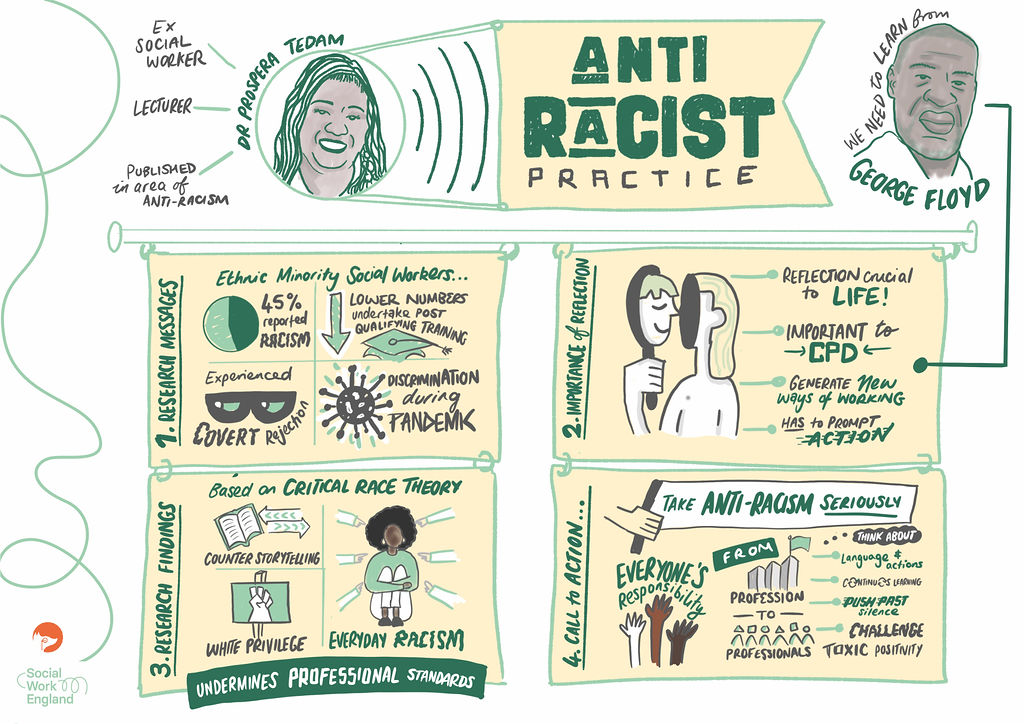 EX
SOCIAL
WORKER
LECTURER
PUBLISHED
in area of
ANTI-RACISM
DR PROSPERA TEDAM
ANTI
RACIST
PRACTICE
WE NEED to LEARN from
GEORGE FLOYD
1. RESEARCH MESSAGES
Ethnic Minority Social Workers...
45%
reported
RACISM
LOWER NUMBERS
undertake POST
QUALIFYING TRAINING
Experienced
COVERT Rejection
DISCRIMINATION
during
PANDEMIK
2. IMPORTANCE of REFLECTION
REFLECTION crucial
to LIFE!
IMPORTANT to
CPD
GENERATE New
ways of WORKING
HAS to PROMPT
ACTION
3. RESEARCH FINDINGS
Based on CRITICAL RACE THEORY
COUNTER STORYTELLING
WHITE PRIVILEGE
EVERYDAY RACISM
UNDERMINES PROFESSIONAL STANDARDS
4. CALL to ACTION...
TAKE ANTI-RACISM SERIOUSLY
EVERYONE'S
Responsibility
FROM
PROFESSION
TO
PROFESSIONALS
THINK ABOUT
Language &
actions
CONTINUOUS LEARNING
PUSH PAST
silence
CHALLENGE
TOXIC POSITIVITY
Social
Work
England